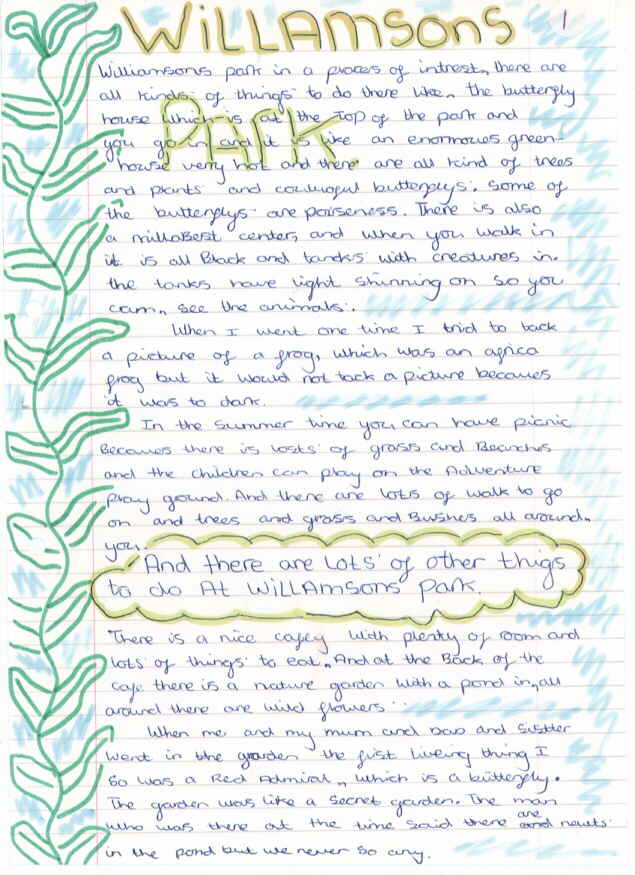 WiLLAMsons
1
PARK
Williamsons park in a proces of intrest, there are
all kinds of things to do there like, the butterfly
house which is at the top of the park and
you go in and it is like an enormoues green-
house verry hot and there are all kind of trees
and plants and coulouful butterflys. Some of
the butterflys are poiseness. There is also
a millaBest center, and when you walk in
it is all Black and tancks with creatures in.
the tanks have light shinning on so you
can, see the animals.
When I went one time I tried to tack
a picture of a frog, which was an africa
frog but it would not tack a picture becames
it was to dark.
In the summer time you can have picnic
Becames there is losts of grass and Beanches
and the children can play on the Adventure
play ground. And there are lots of walk to go
on and trees and grass and Bushes all around,
you.
And there are Lots of other thigs
to do At WiLLAMsons Park.
There is a nice cafey with plenty of room and
lots of things to eat, And at the Back of the
cafe there is a nature garden with a pond in, all
around there are wild flowers.
When me and my mum and Dad and Sisster
went in the garden the fist liveing thing I
So was a Red Admiral, which is a butterfly.
The garden was like a secret garden. The man
who was there at the time said there are newts
in the pond but we never so any.